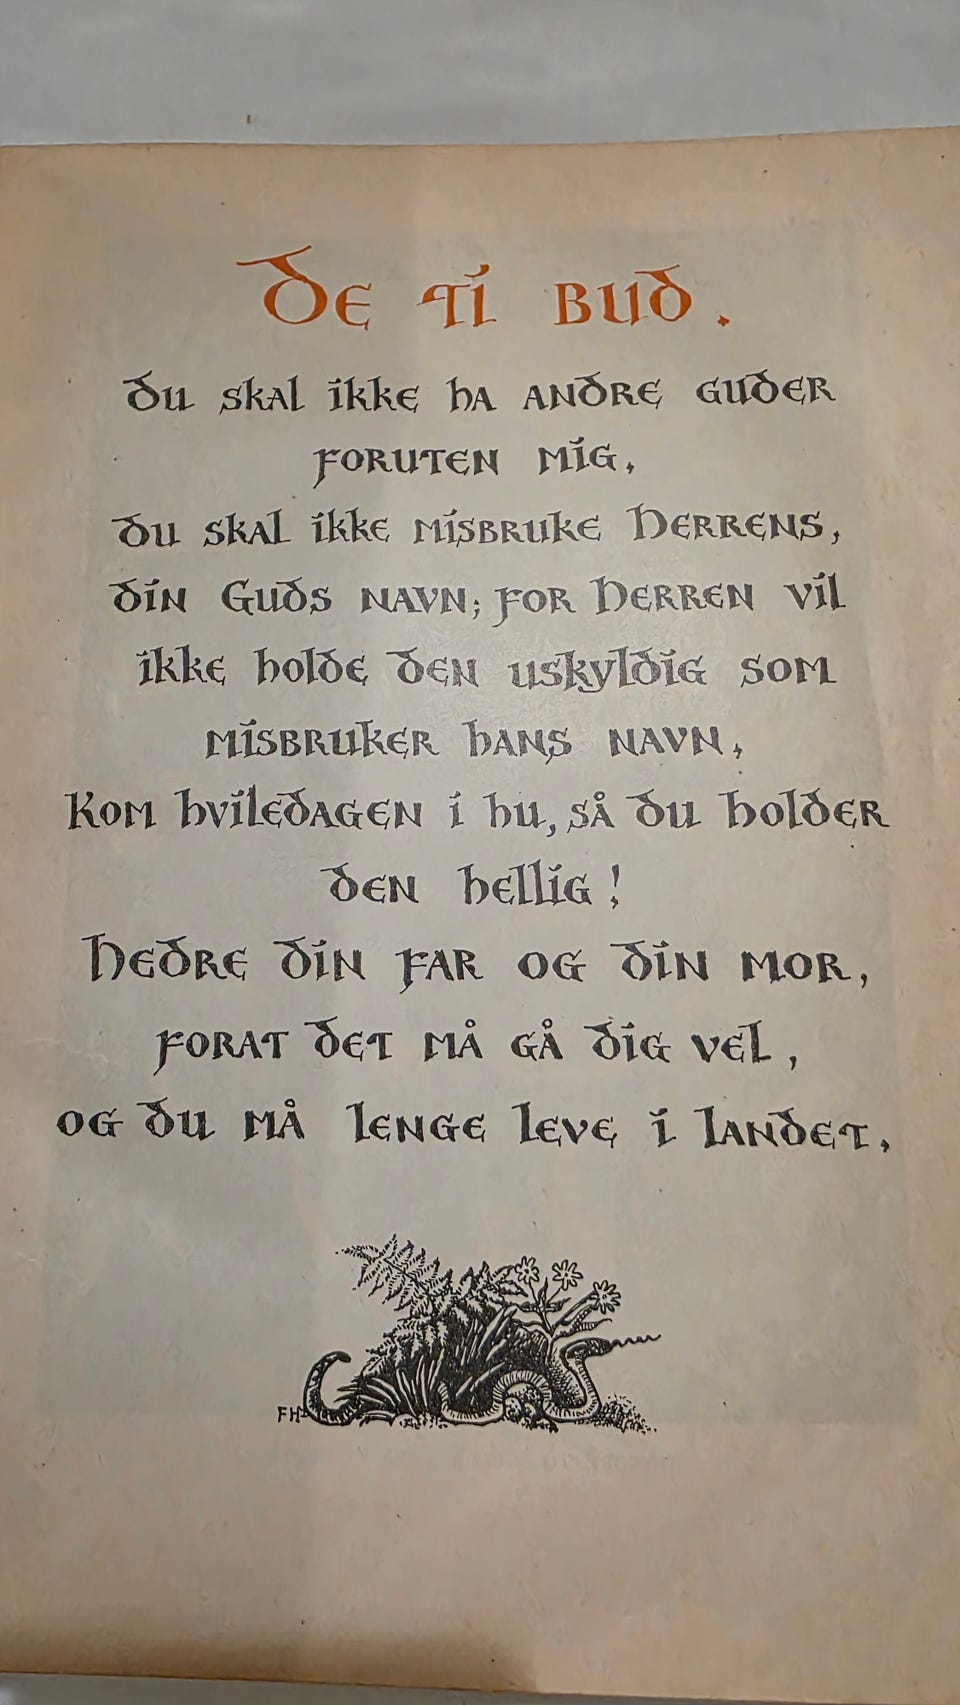 De ti bud.
Du skal ikke ha andre guder
foruten mig.
Du skal ikke misbruke Herrens,
din Guds navn; for Herren vil
ikke holde den uskyldig som
misbruker hans navn.
Kom hviledagen i hu, så du holder
den hellig!
Hedre din far og din mor,
forat det må gå dig vel,
og du må lenge leve i landet.
FH